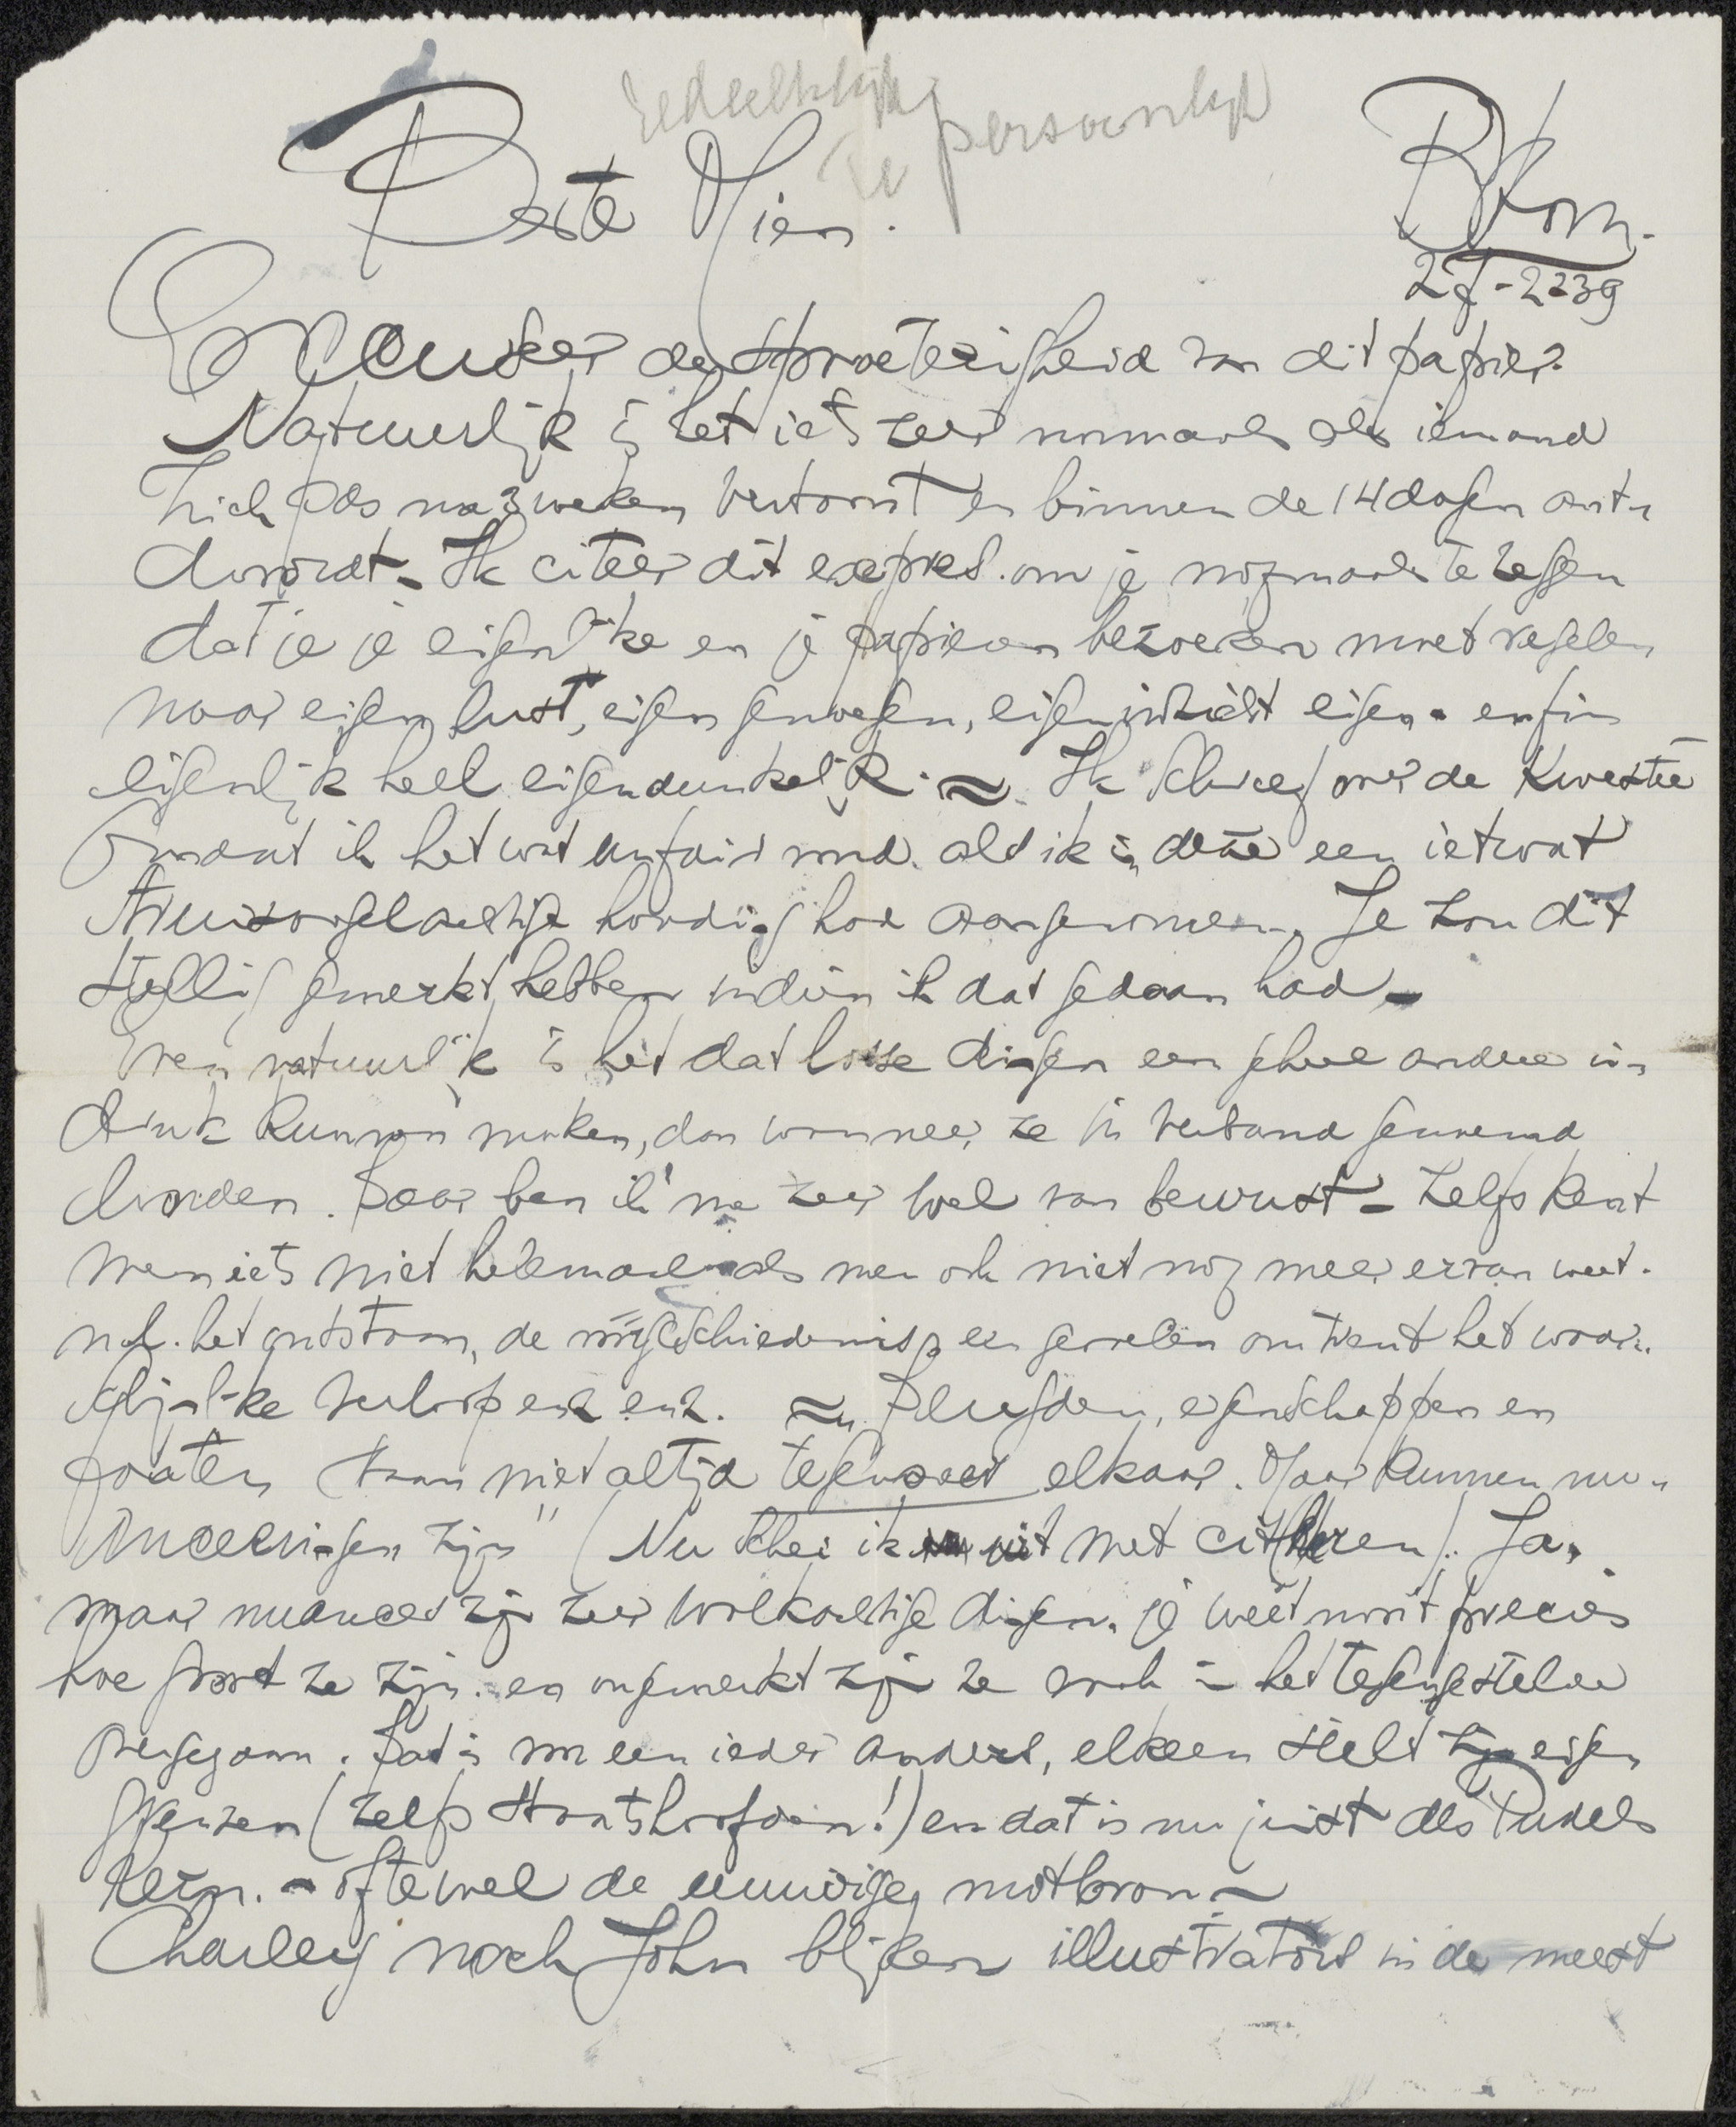 gedeeltelijk persoonlijk
Beste Mien.
R'dam.
27-2-39
Excuseer de sproeterigheid van dit papier.
Natuurlijk is het iets zeer normaals als iemand
zich pas na 3 weken vertoont en binnen de 14 dagen ant-
woordt - Ik citeer dit expres. om je nogmaals te zeggen
dat je je eigenlijke en je papieren bezoeken moet regelen
naar eigen lust, eigen genoegen, eigen inzicht eigen - enfin
eigenlijk heel eigendunkelijk. ~ Ik schreef over de kwestie
omdat ik het wat unfair vond. als ik in deze een ietwat
struisvogelachtige houding had aangenomen. Je zou dit
stellig gemerkt hebben indien ik dat gedaan had -
Even natuurlijk is het dat losse dingen een geheel andere in-
druk kunnen maken, dan wanneer ze in verband genoemd
worden. Daar ben ik me zeer wel van bewust - Zelfs kent
men iets niet helemaal als men ook niet nog meer ervan weet.
n.l. het ontstaan, de voorgeschiedenis, een gevoelen omtrent het waar-
schijnlijke verloop enz. enz. ~ „ Deugden, eigenschappen en
fouten staan niet altijd tegenover elkaar. Maar kunnen nu-
anceeringen zijn" (Nu schei ik uit met citeeren). Ja,
maar nuances zijn zeer wolkachtige dingen. je weet nooit precies
hoe groot ze zijn. en ongemerkt zijn ze vaak in het tegengestelde
overgegaan. Dat is voor een ieder anders, elkeen stelt zijn eigen
grenzen (zelfs Staatshoofden!) en dat is nu juist des Pudels
Kern. - oftewel de eeuwige motbron ~
Charley noch John blijken illustrators in de meest